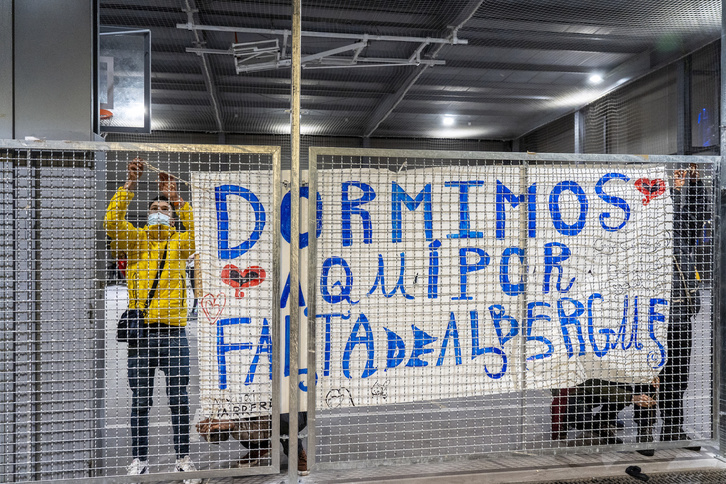 DORMIMOS
AQUÍ POR
FALTA DE ALBERGUES